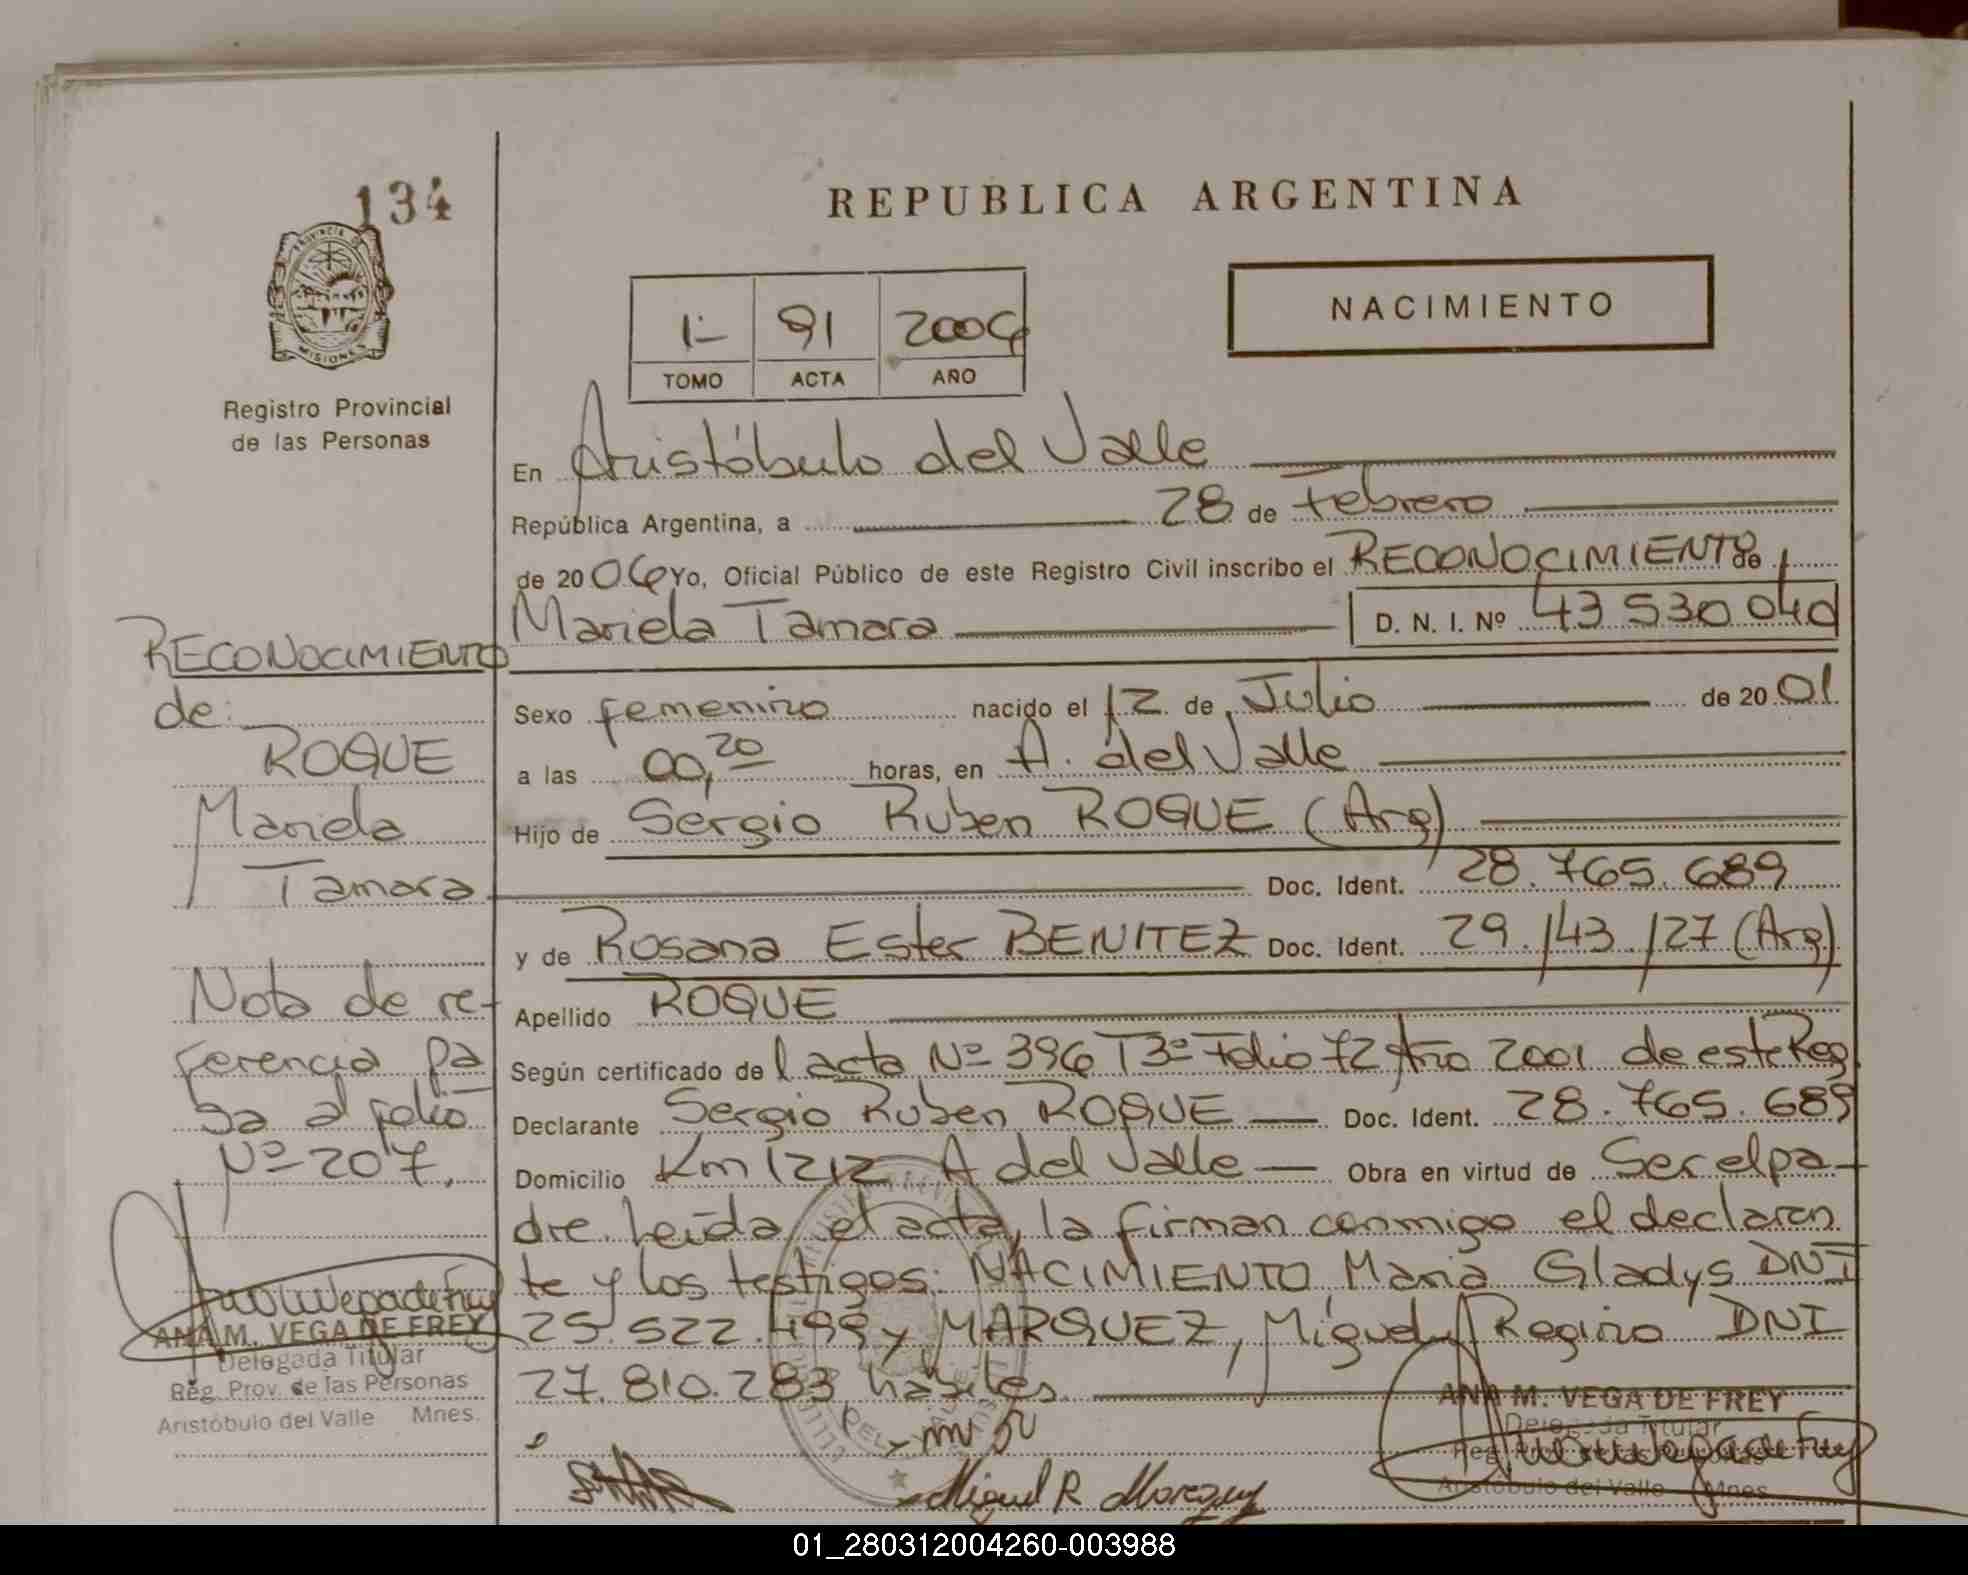 134
PROVINCIA DE
MISIONES
Registro Provincial
de las Personas
REPUBLICA ARGENTINA
NACIMIENTO
1- 91 2006
TOMO ACTA AÑO
En Aristóbulo del Valle
República Argentina, a 28 de Febrero
de 20 06 Yo, Oficial Público de este Registro Civil inscribo el RECONOCIMIENTO de
Mariela Tamara D. N. I. Nº 43 530 040
Sexo femenino nacido el 12 de Julio de 20 01
a las 00,20 horas, en A. del Valle
Hijo de Sergio Ruben ROQUE (Arg)
Doc. Ident. 28.765.689
y de Rosana Ester BENITEZ Doc. Ident. 29.143.127 (Arg)
Apellido ROQUE
Según certificado de l acta Nº 396 T3º Folio 72 Año 2001 de este Reg
Declarante Sergio Ruben ROQUE Doc. Ident. 28.765.689
Domicilio Km 1212 A del Valle Obra en virtud de Ser el pa-
dre. Leída el acta, la firman conmigo el declaran
te y los testigos: NACIMIENTO Maria Gladys DNI
25.522.499 y MARQUEZ, Miguel Regino DNI
27.810.283 hábiles.
Miguel R Marquez
ANA M. VEGA DE FREY
Delegada Titular
Aristóbulo del Valle Mnes.
RECONOCIMIENTO
de:
ROQUE
Mariela
Tamara
Nota de re-
ferencia pa
sa al folio
Nº 207.
ANA M. VEGA DE FREY
Delegada Titular
Reg. Prov. de las Personas
Aristóbulo del Valle Mnes.
01_280312004260-003988